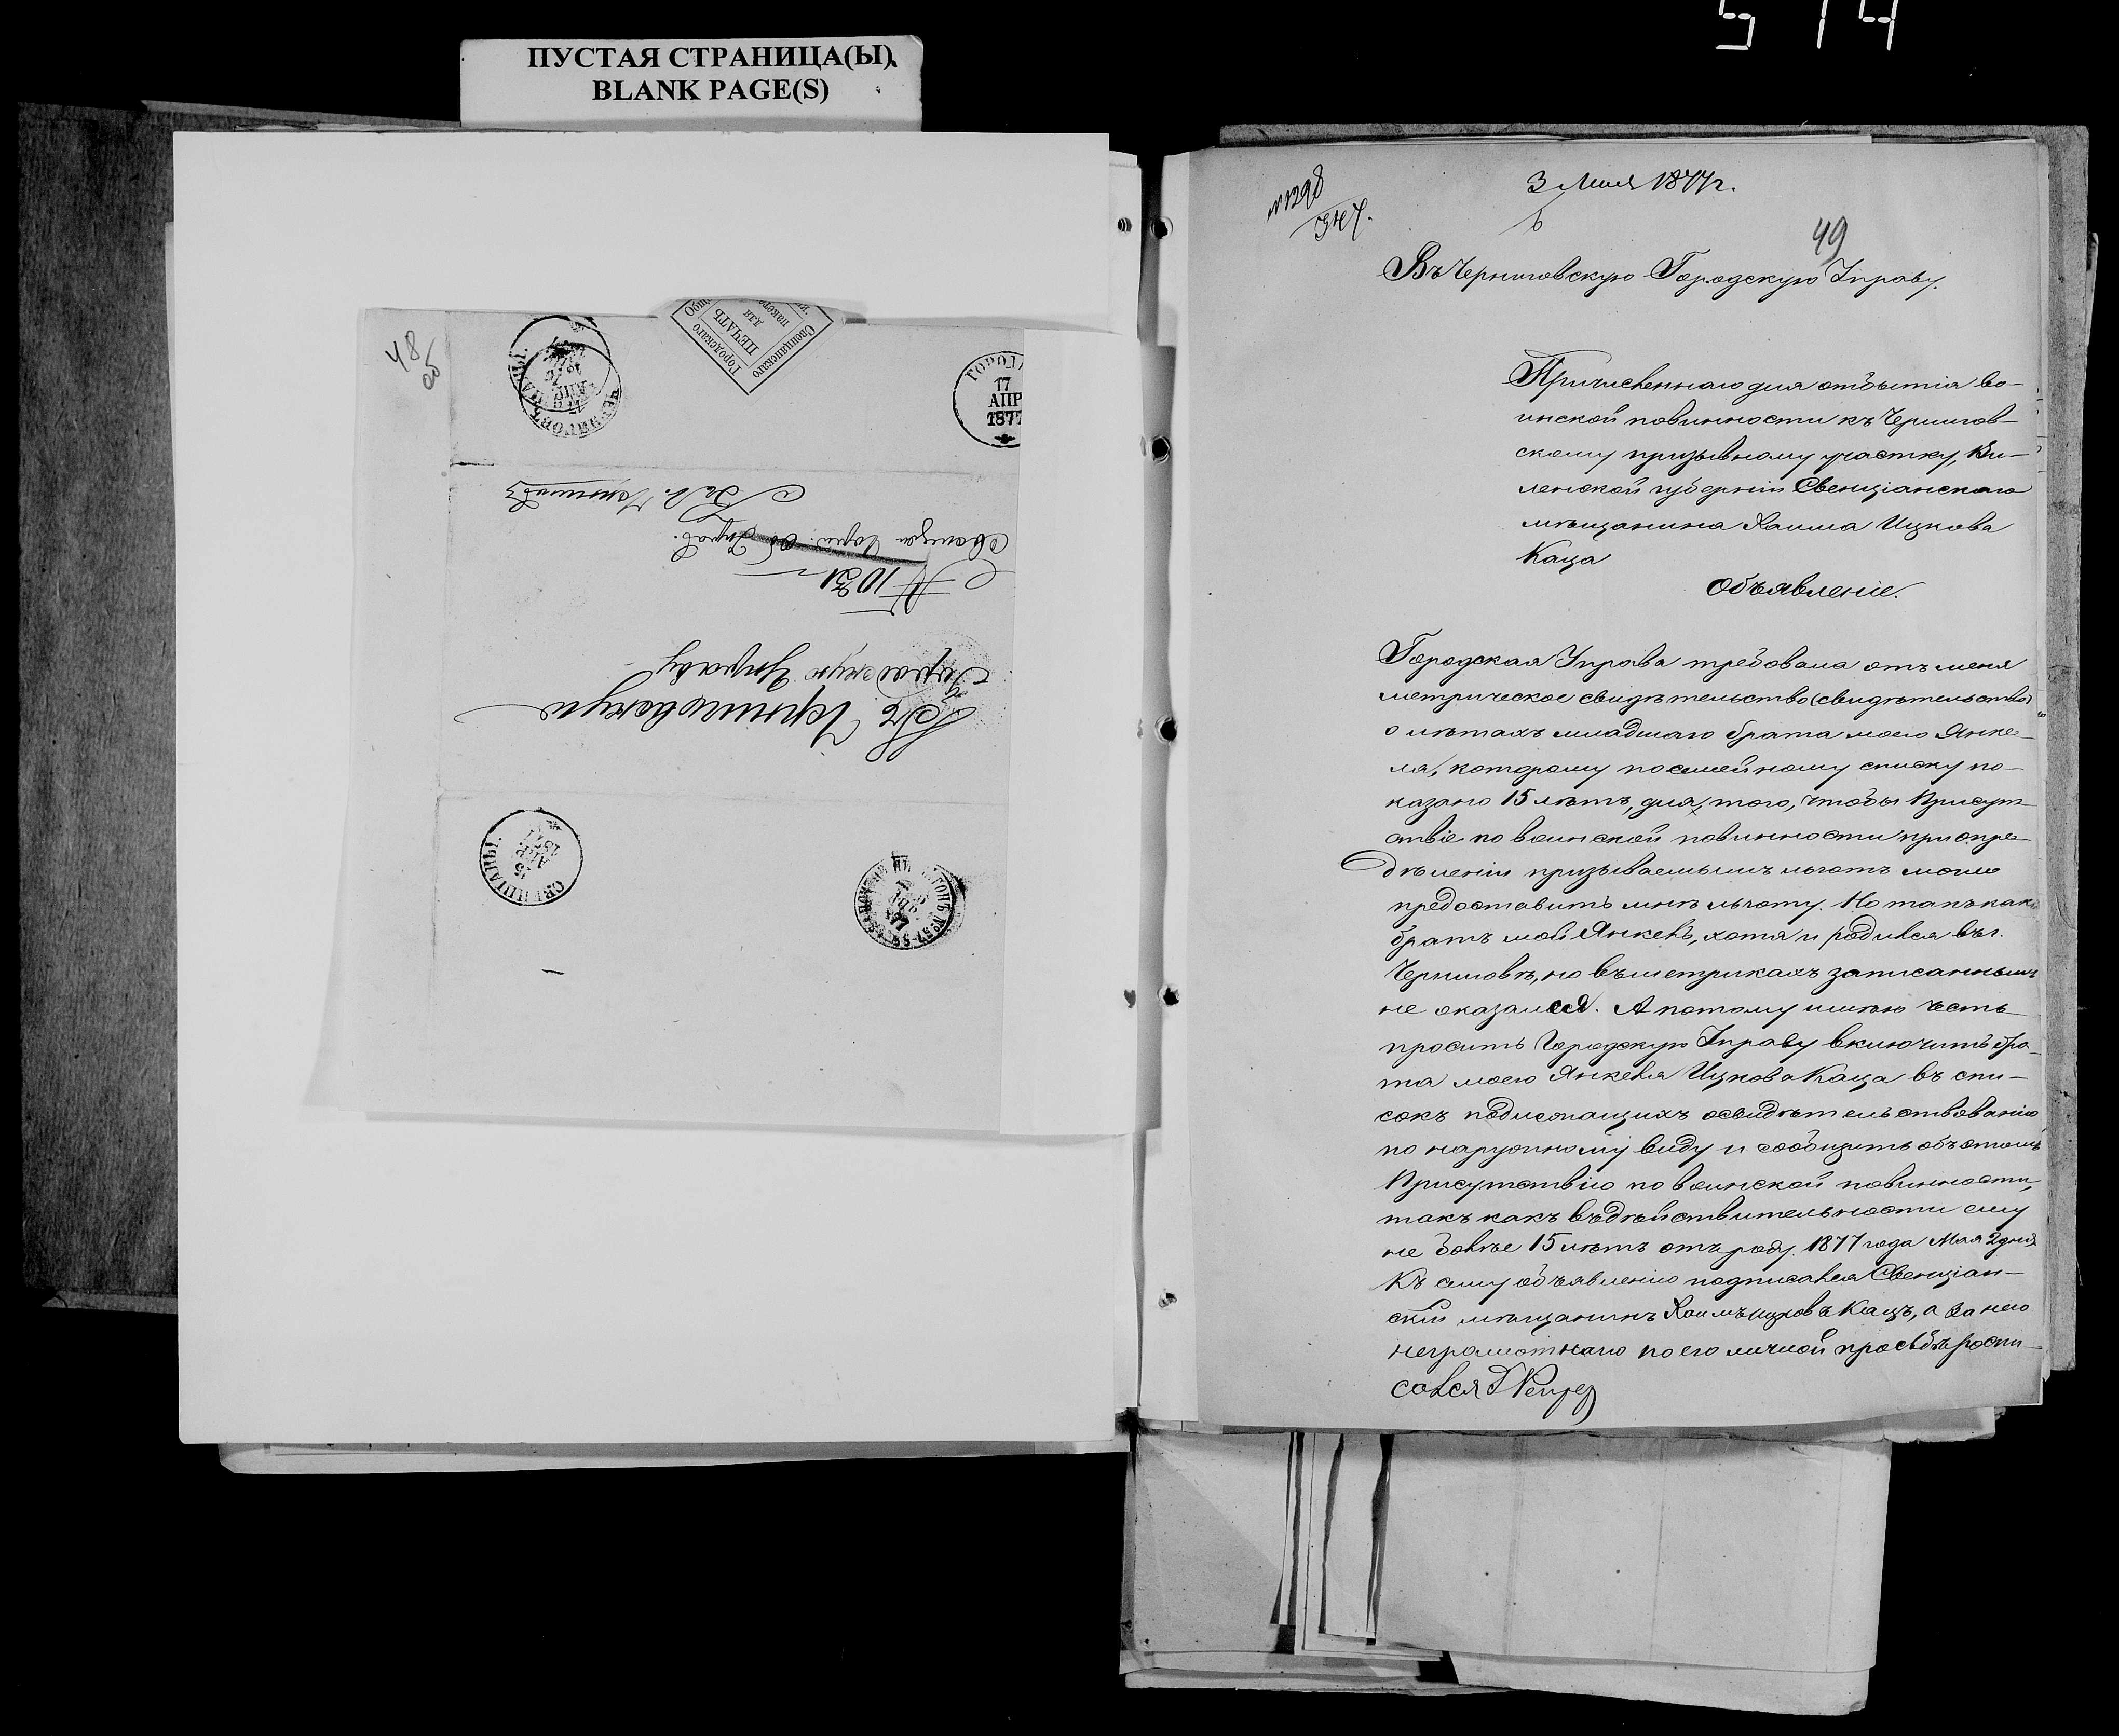 514
ПУСТАЯ СТРАНИЦА(Ы).
BLANK PAGE(S)
48
об
Городскаго
ПЕЧАТЬ
для
Свенцянскаго
ГОРОД
17
АПР
1877
Черниговъ
№ 1031
Въ Черниговскую
Городскую Управу
СВЕНЦЯНЫ.
15
АПР
1877
№ 1298
3 Мая 1877 г.
49
Въ Черниговскую Городскую Управу.
Причисленнаго для отбытія во-
инской повинности къ Чернигов-
скому призывному участку, Ви-
ленской губерніи Свенціанскаго
мѣщанина Хаима Ицкова
Каца
Объявленіе.
Городская Управа требовала отъ меня
метрическое свидѣтельство (свидѣтельство)
о лѣтахъ младшаго брата моего Янке-
ля, которому по семейному списку по-
казано 15 лѣтъ, для того, чтобы Присут-
ствіе по воинской повинности при опре-
дѣленіи призываемымъ льготъ могло
предоставить мнѣ льготу. Но такъ какъ
братъ мой Янкель, хотя и родился въ г.
Черниговѣ, но въ метрикахъ записаннымъ
не оказался. А потому имѣю честь
просить Городскую Управу включить бра-
та моего Янкеля Ицкова Каца въ спи-
сокъ подлежащихъ освидѣтельствованію
по наружному виду и сообщить объ этомъ
Присутствію по воинской повинности,
такъ какъ въ дѣйствительности ему
не болѣе 15 лѣтъ отъ роду. 1877 года Мая 2 дня
Къ сему объявленію подписался Свенціан-
скій мѣщанинъ Хаимъ Ицковъ Кацъ, а за него
неграмотнаго по его личной просьбѣ роспи-
сался